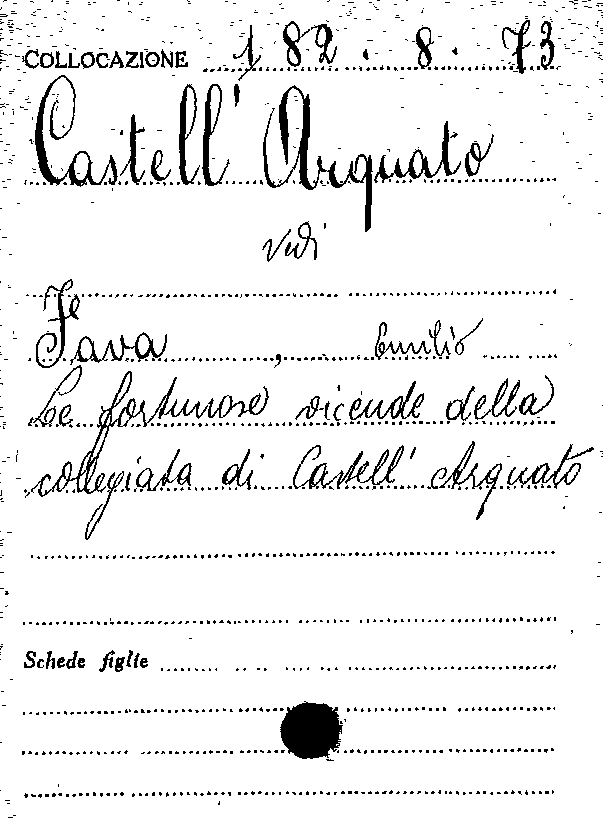 COLLOCAZIONE 182.8.73
Castell' Arquato
vedi
Fava, Emilio
Le fortunose vicende della
collegiata di Castell' Arquato
Schede figlie